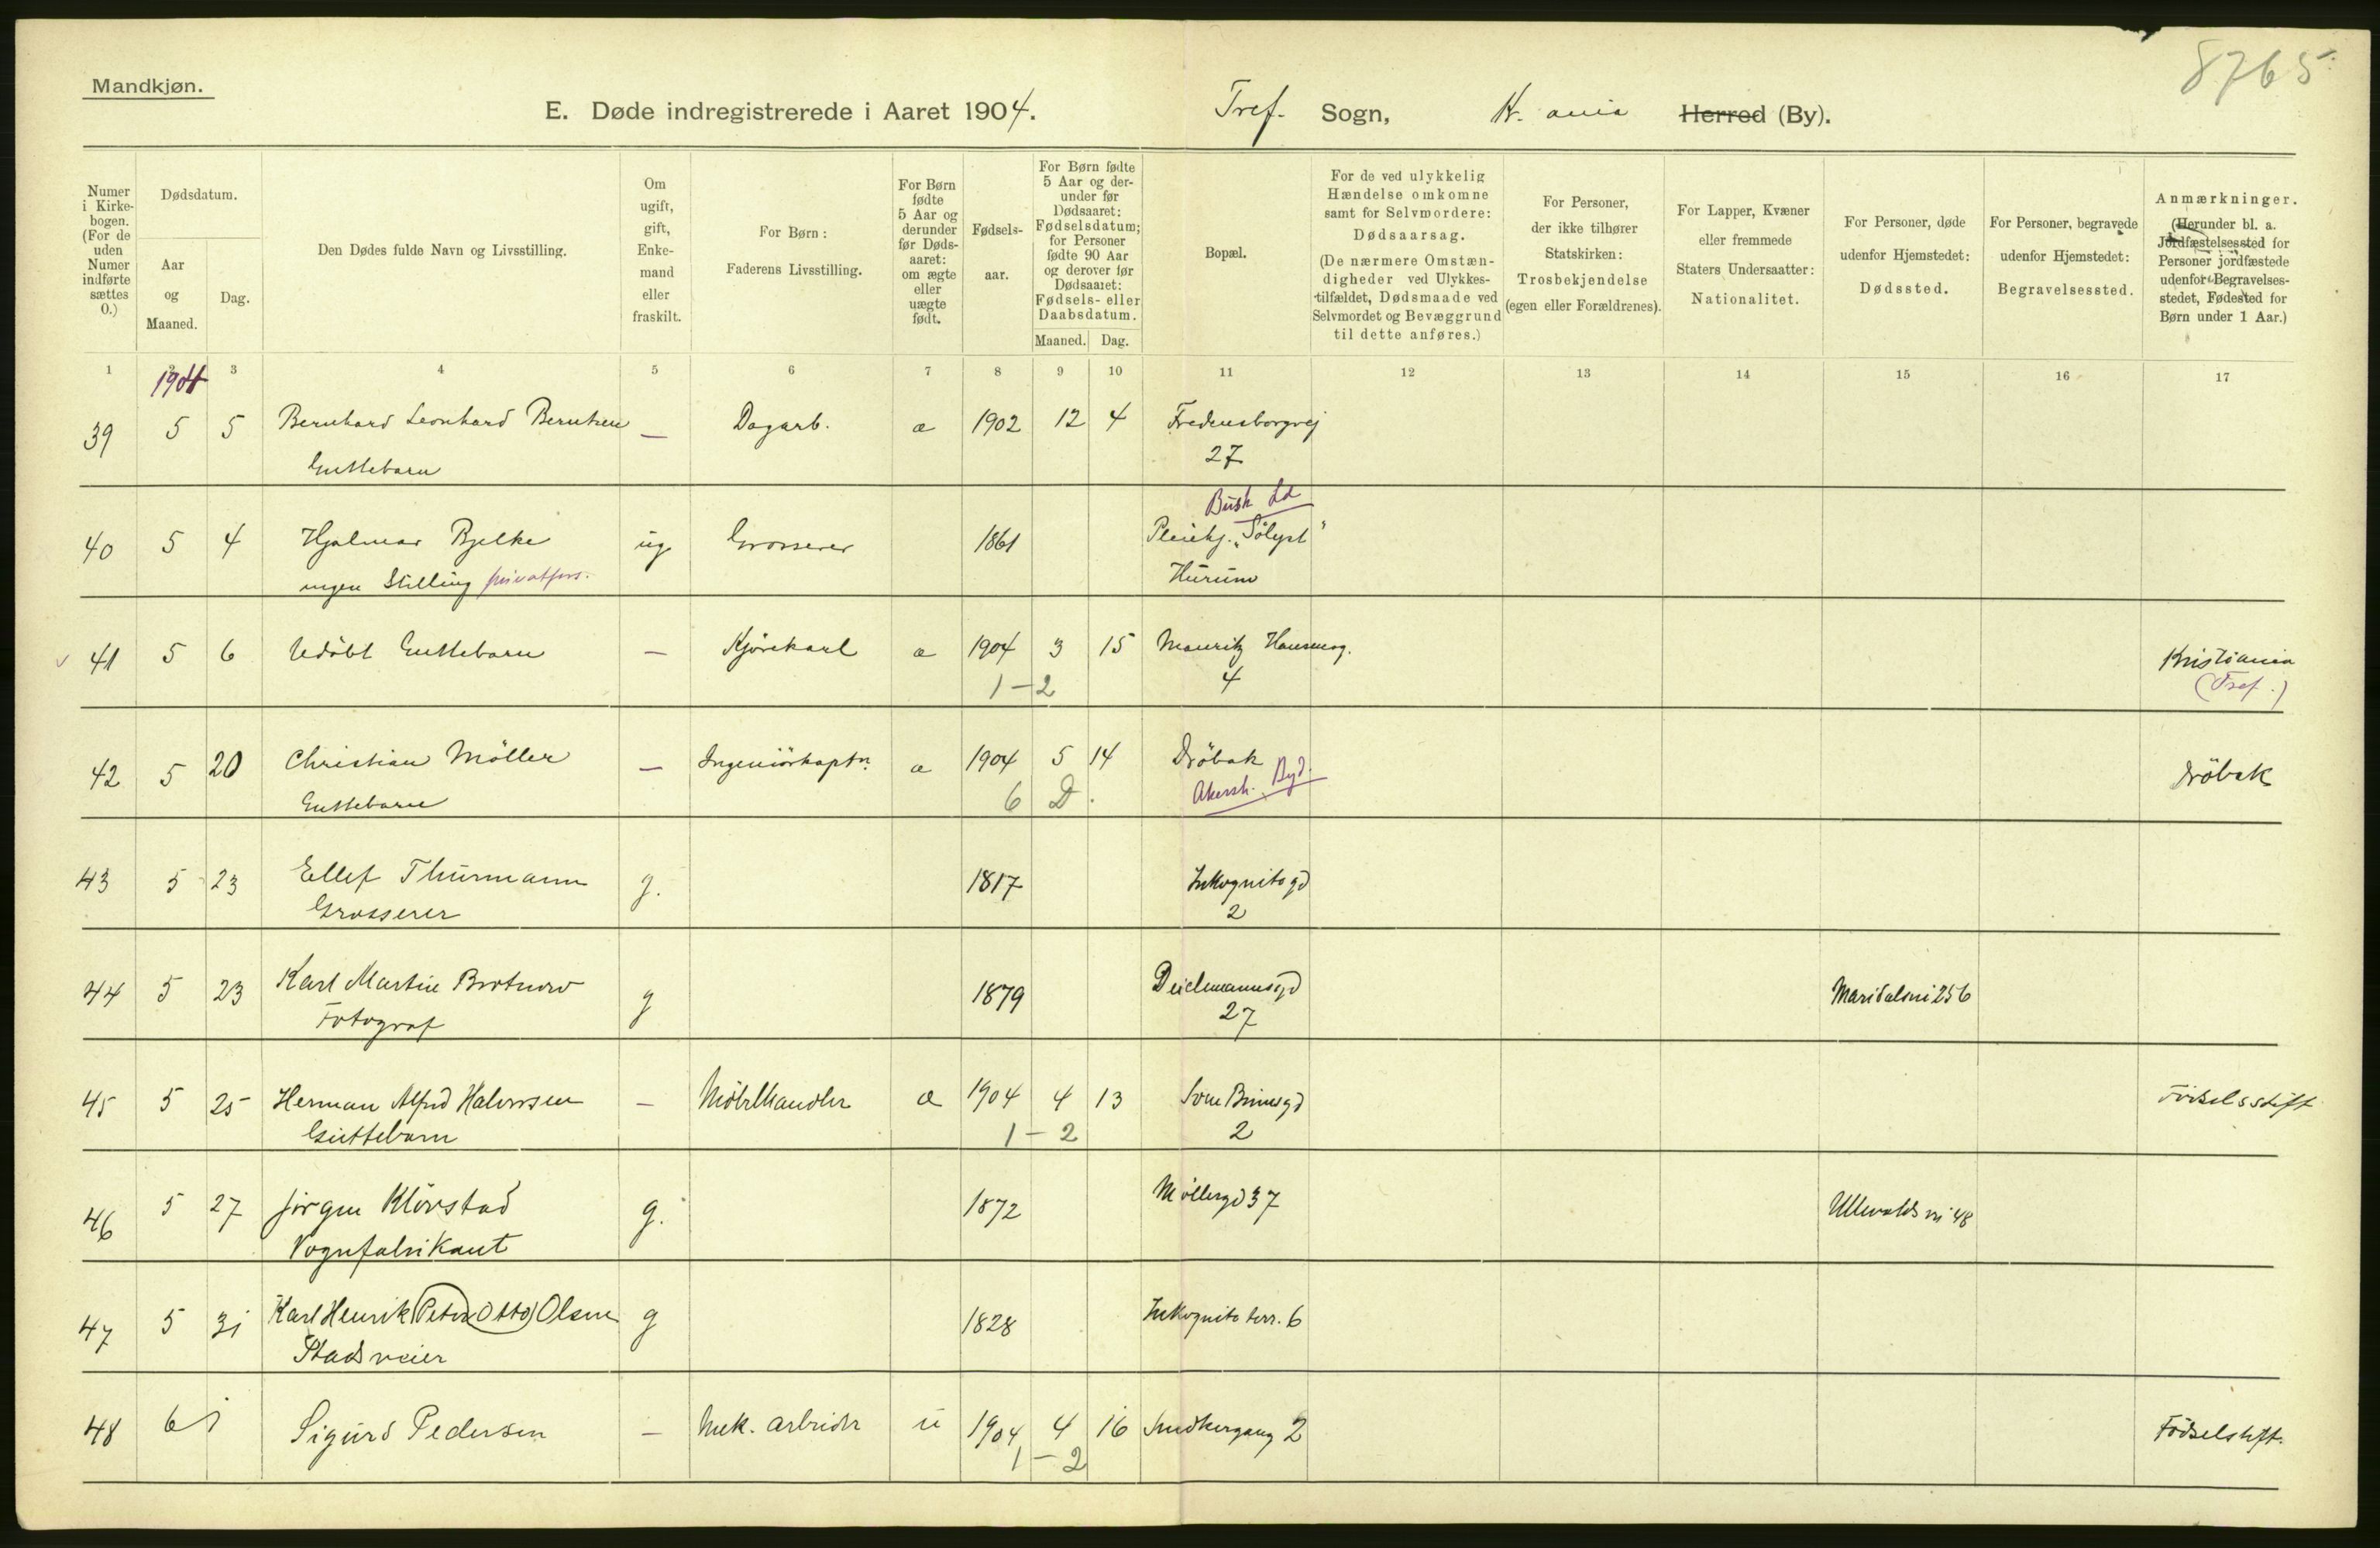 8765.
Mandkjøn.
E. Døde indregistrerede i Aaret 1904.
Tref. Sogn, Kr. ania Herred (By).
Numer i Kirkebogen. (For de uden Numer indførte sættes 0.)
Dødsdatum.
Aar og Maaned.
Dag.
Den Dødes fulde Navn og Livsstilling.
Om ugift, gift, Enkemand eller fraskilt.
For Børn:
Faderens Livsstilling.
For Børn fødte 5 Aar og derunder før Dødsaaret: om ægte eller uægte født.
Fødselsaar.
For Børn fødte 5 Aar og derunder før Dødsaaret: Fødselsdatum; for Personer fødte 90 Aar og derover før Dødsaaret: Fødsels- eller Daabsdatum.
Maaned. Dag.
Bopæl.
For de ved ulykkelig Hændelse omkomne samt for Selvmordere: Dødsaarsag.
(De nærmere Omstændigheder ved Ulykkestilfældet, Dødsmaade ved Selvmordet og Bevæggrund til dette anføres.)
For Personer, der ikke tilhører Statskirken: Trosbekjendelse (egen eller Forældrenes).
For Lapper, Kvæner eller fremmede Staters Undersaatter: Nationalitet.
For Personer, døde udenfor Hjemstedet: Dødssted.
For Personer, begravede udenfor Hjemstedet: Begravelsessted.
Anmærkninger.
(Herunder bl. a. Jordfæstelsessted for Personer jordfæstede udenfor Begravelsesstedet, Fødested for Børn under 1 Aar.)
1 2 3 4 5 6 7 8 9 10 11 12 13 14 15 16 17
1904
39 5 5 Bernhard Leonhard Berntsen — Dagarb. æ 1902 12 4 Fredensborgvej
Guttebarn 27
Busk. Ld
40 5 4 Hjalmar Bjelke ug Grosserer 1861 Pleiehj. "Sölyst"
ingen Stilling privatfors. Hurum
41 5 6 Udöbt Guttebarn — Kjörekarl æ 1904 3 15 Mauritz Hansensg. Kristiania
1-2 4 (Tref.)
42 5 20 Christian Möller — Ingeniörkaptn. æ 1904 5 14 Dröbak Dröbak
Guttebarn 6 D. Akersh. Byd.
43 5 23 Ellef Thurmann g. 1817 Inkognitogd
Grosserer 2
44 5 23 Karl Martin Brotnow g 1879 Deichmannsgd Maridalsvei 256
Fotograf 27
45 5 25 Herman Alfred Halvorsen — Möbelhandler æ 1904 4 13 Sven Brunsgd Födselsstift
Guttebarn 1-2 2
46 5 27 Jörgen Klövstad g. 1872 Møllergd 37 Ullevoldsvei 48
Vognfabrikant
47 5 31 Karl Henrik (Peter Otto) Olsen g 1828 Inkognito terr. 6
Stadsveier
48 6 1 Sigurd Pedersen — Mek. arbeider u 1904 4 16 Smedkergang 2 Födselstift.
1-2